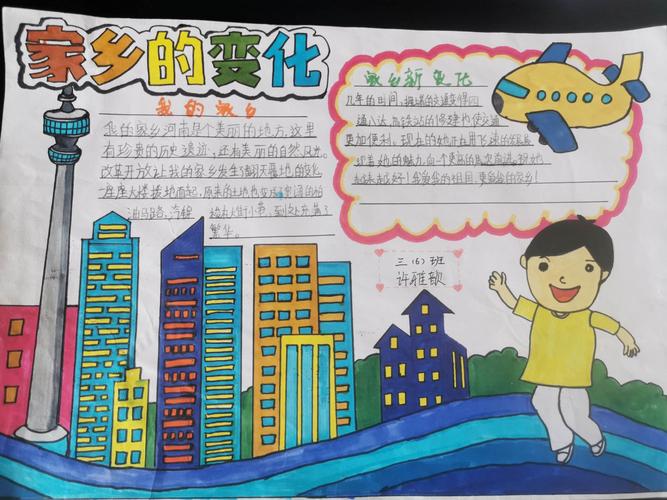 家乡的变化
我的家乡
我的家乡河南是个美丽的地方,这里
有珍贵的历史遗迹,还有美丽的自然风光。
改革开放让我的家乡发生了翻天覆地的变化
一座座大楼拔地而起,原来的土地也变成
油马路,汽车 大街小巷,到处充满了
繁华。
家乡新变化
几年的时间,拥堵的交通变得四
通八达,高铁站的修建也使交通
更加便利。现在的她正在用飞速的发展
着她的魅力,向一个更高的
越来越好!我爱我的祖国,更爱我的家乡!
三(6)班
许雅歆